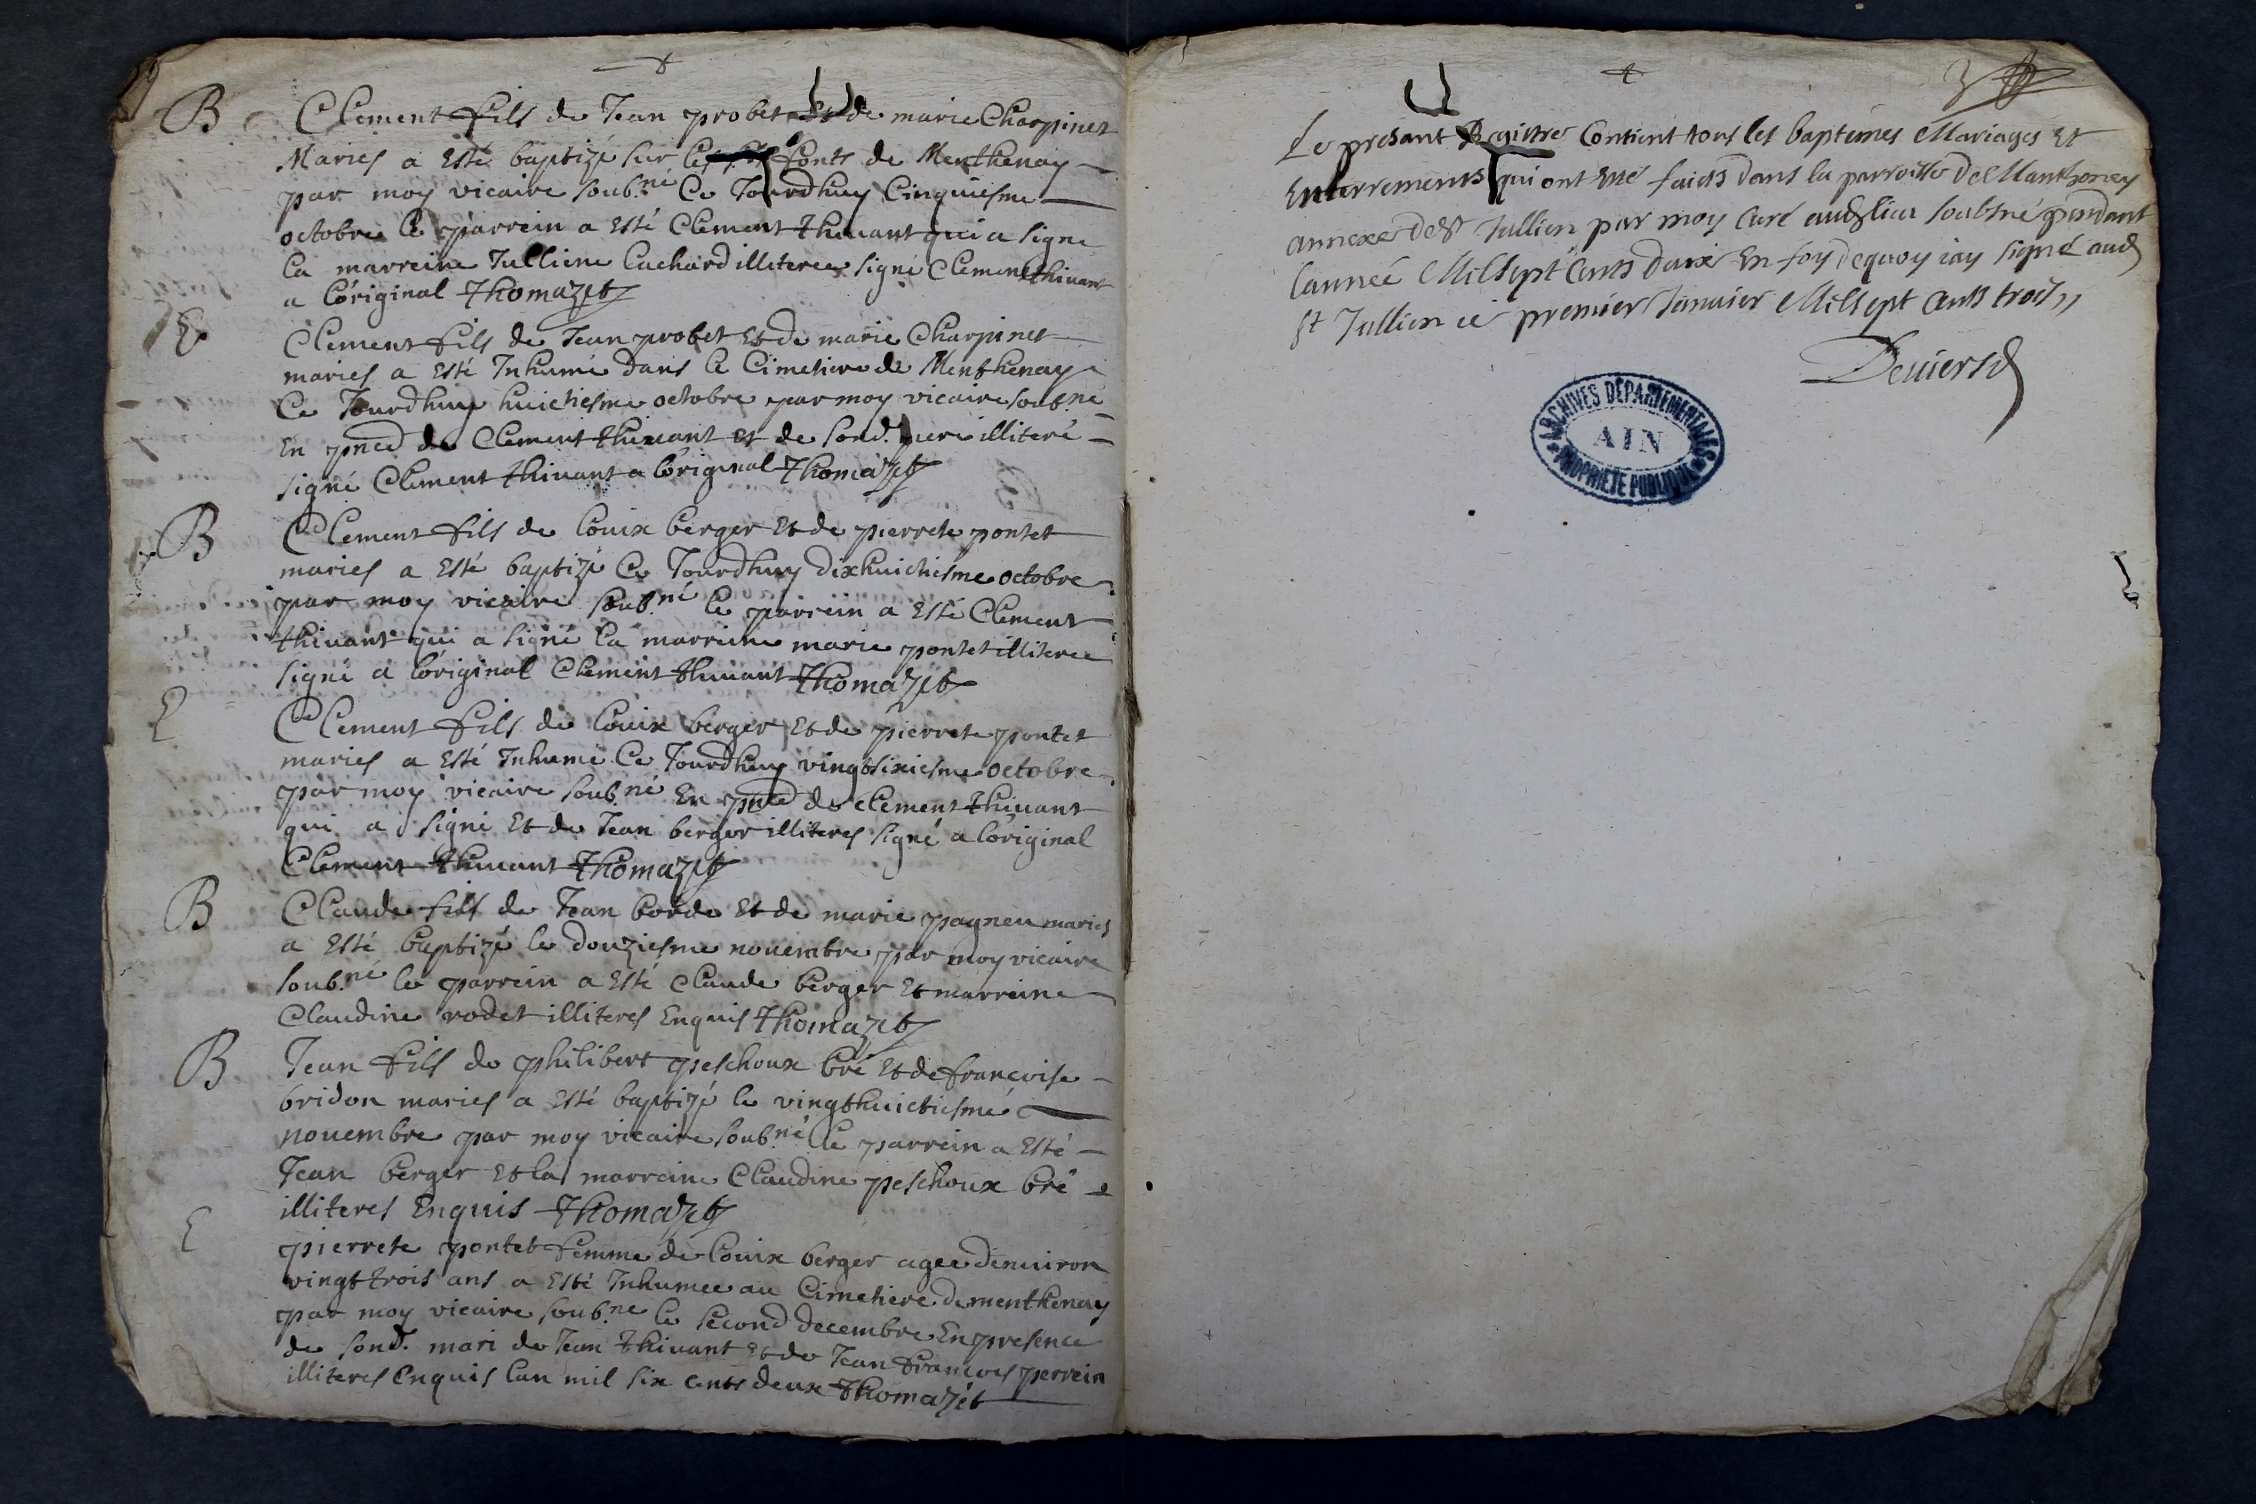 B
Clement fils de Jean probet et de marie Charpinet
Mariés a esté baptizé sur les fonts de Menthenay
par moy vicaire soub.né Ce Jourdhuy Cinquiesme
octobre le parrein a esté Clement thiuant qui a signé
la marreine Julliene Cachard illiteree signé Clement thiuant
a l'original Thomazet
E
Clement fils de Jean probet et de marie Charpinet
mariés a esté Inhumé dans le Cimetiere de Menthenay
Ce Jourdhuy huictiesme octobre par moy vicaire soub.né
En pnce de Clement thiuant et de sond. pere illiteré
signé Clement thiuant a l'original Thomazet
B
Clement fils de Louix berger et de pierrete pontet
mariés a esté baptizé Ce Jourdhuy dixhuictiesme octobre
par moy vicaire soub.né le parrein a esté Clement
thiuant qui a signé la marreine marie pontet illiteree
signé a l'original Clement thiuant Thomazet
E
Clement fils de Louix berger et de pierrete pontet
mariés a esté Inhumé Ce Jourdhuy vingtsixiesme octobre
par moy vicaire soub.né En pnce de Clement thiuant
qui a signé et de Jean berger illiteres signé a l'original
Clement thiuant Thomazet
B
Claude fils de Jean borde et de marie pagneu mariés
a esté baptizé le douziesme nouembre par moy vicaire
soub.né le parrein a esté Claude berger et marreine
Claudine rodet illiteres Enquis Thomazet
B
Jean fils de philibert peschoux bré et de francoise
bridon mariés a esté baptizé le vingthuictiesme
nouembre par moy vicaire soub.né le parrein a esté
Jean berger et la marreine Claudine peschoux bré
illiteres Enquis Thomazet
E
pierrete pontet femme de Louix berger agee denuiron
vingt trois ans a esté Inhumee au Cimetiere de menthenay
par moy vicaire soub.né le second decembre En presence
de sond. mari de Jean thiuant et de Jean francois perrein
illiteres Enquis lan mil six cents deux Thomazet
3
Le présant Regittre Contient tous les baptémes Mariages et
Enterrements qui ont esté faicts dans la parroisse de Manthoney
annexe de St Jullien par moy Curé audit lieu soubsné pendant
lannée Mil sept Cents deux En foy dequoy iay signé aud
St Jullien ce premier Januier Mil sept cents trois
Deuiersd
ARCHIVES DÉPARTEMENTALES
AIN
PROPRIÉTÉ PUBLIQUE